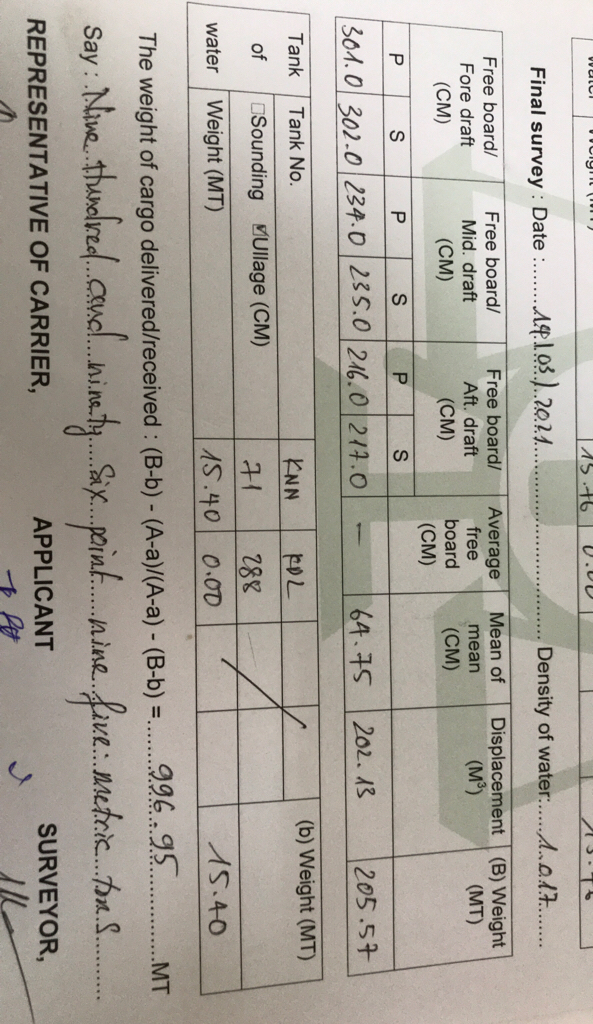 15.46 0.00
Final survey : Date : 14/03/2021 Density of water: 1.017
Free board/ Fore draft (CM) Free board/ Mid. draft (CM) Free board/ Aft. draft (CM) Average free board (CM) Mean of mean (CM) Displacement (M³) (B) Weight (MT)
P S P S P S
301.0 302.0 234.0 235.0 216.0 217.0 — 64.75 202.13 205.57
Tank of water Tank No. KNN KDL (b) Weight (MT)
☐Sounding ☑Ullage (CM) 71 288
Weight (MT) 15.40 0.00 15.40
The weight of cargo delivered/received : (B-b) - (A-a)/(A-a) - (B-b) = 996.95 MT
Say : Nine hundred and ninety six point nine five metric tons
REPRESENTATIVE OF CARRIER, APPLICANT SURVEYOR,